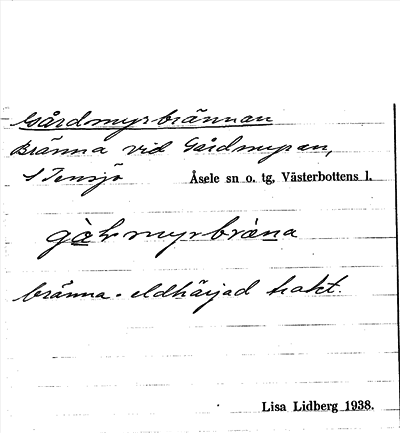 Gårdmyrbrännan
Bränna vid Gårdmyran,
S Tensjö Åsele sn o. tg, Västerbottens l.
bränna = eldhärjad trakt.
Lisa Lidberg 1938.